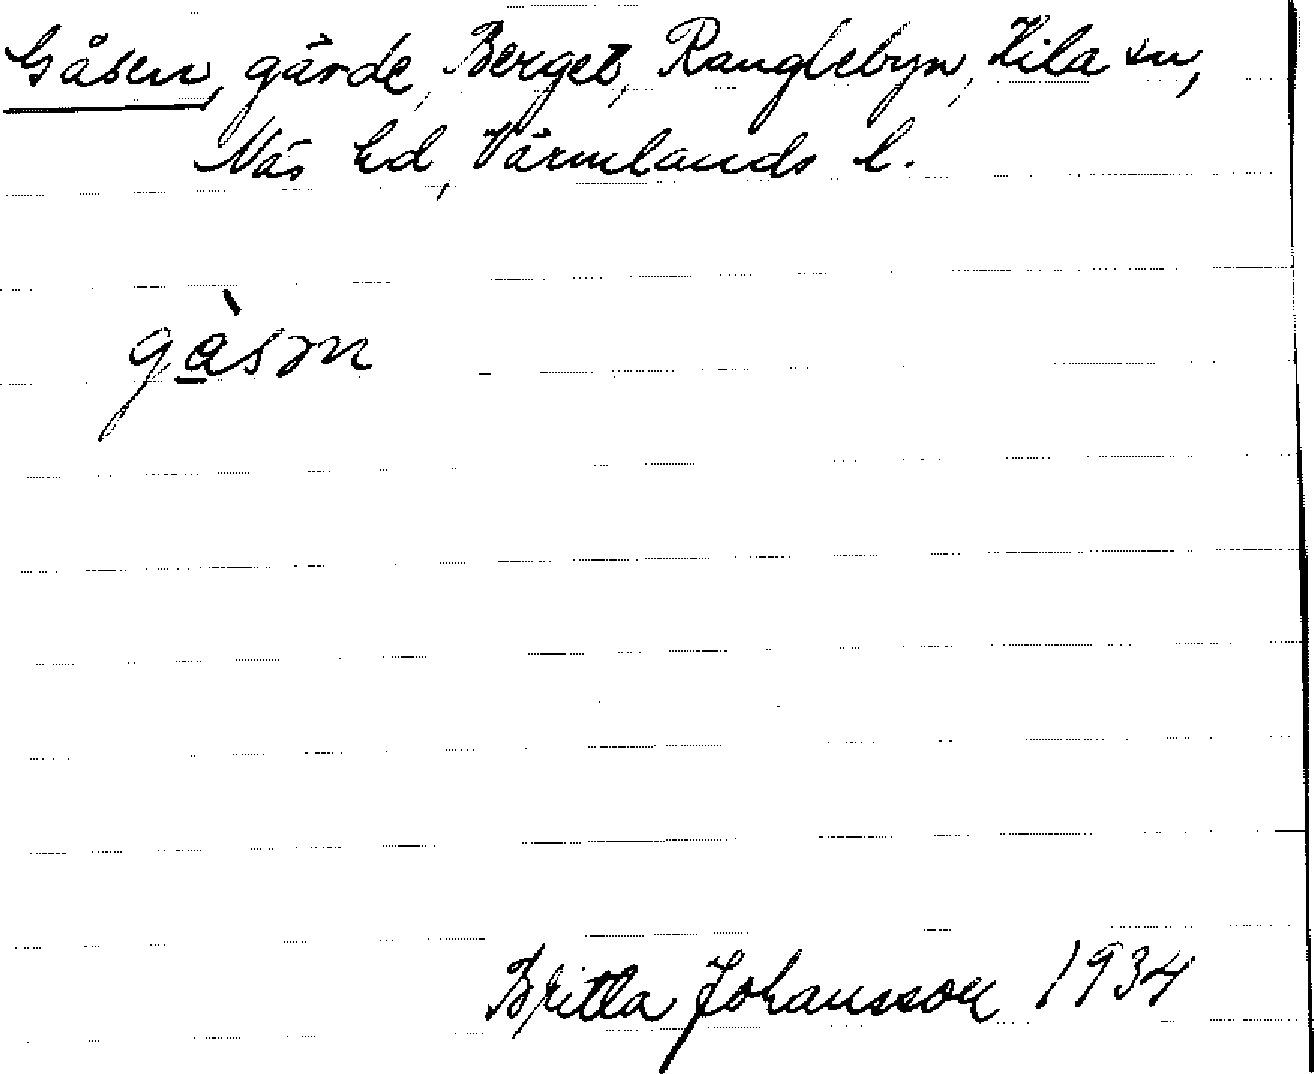 Gåsen, gärde, Berget, Ranglebyn, Kila sn,
Näs hd, Värmlands l.
gàsən
Britta Johansson 1934